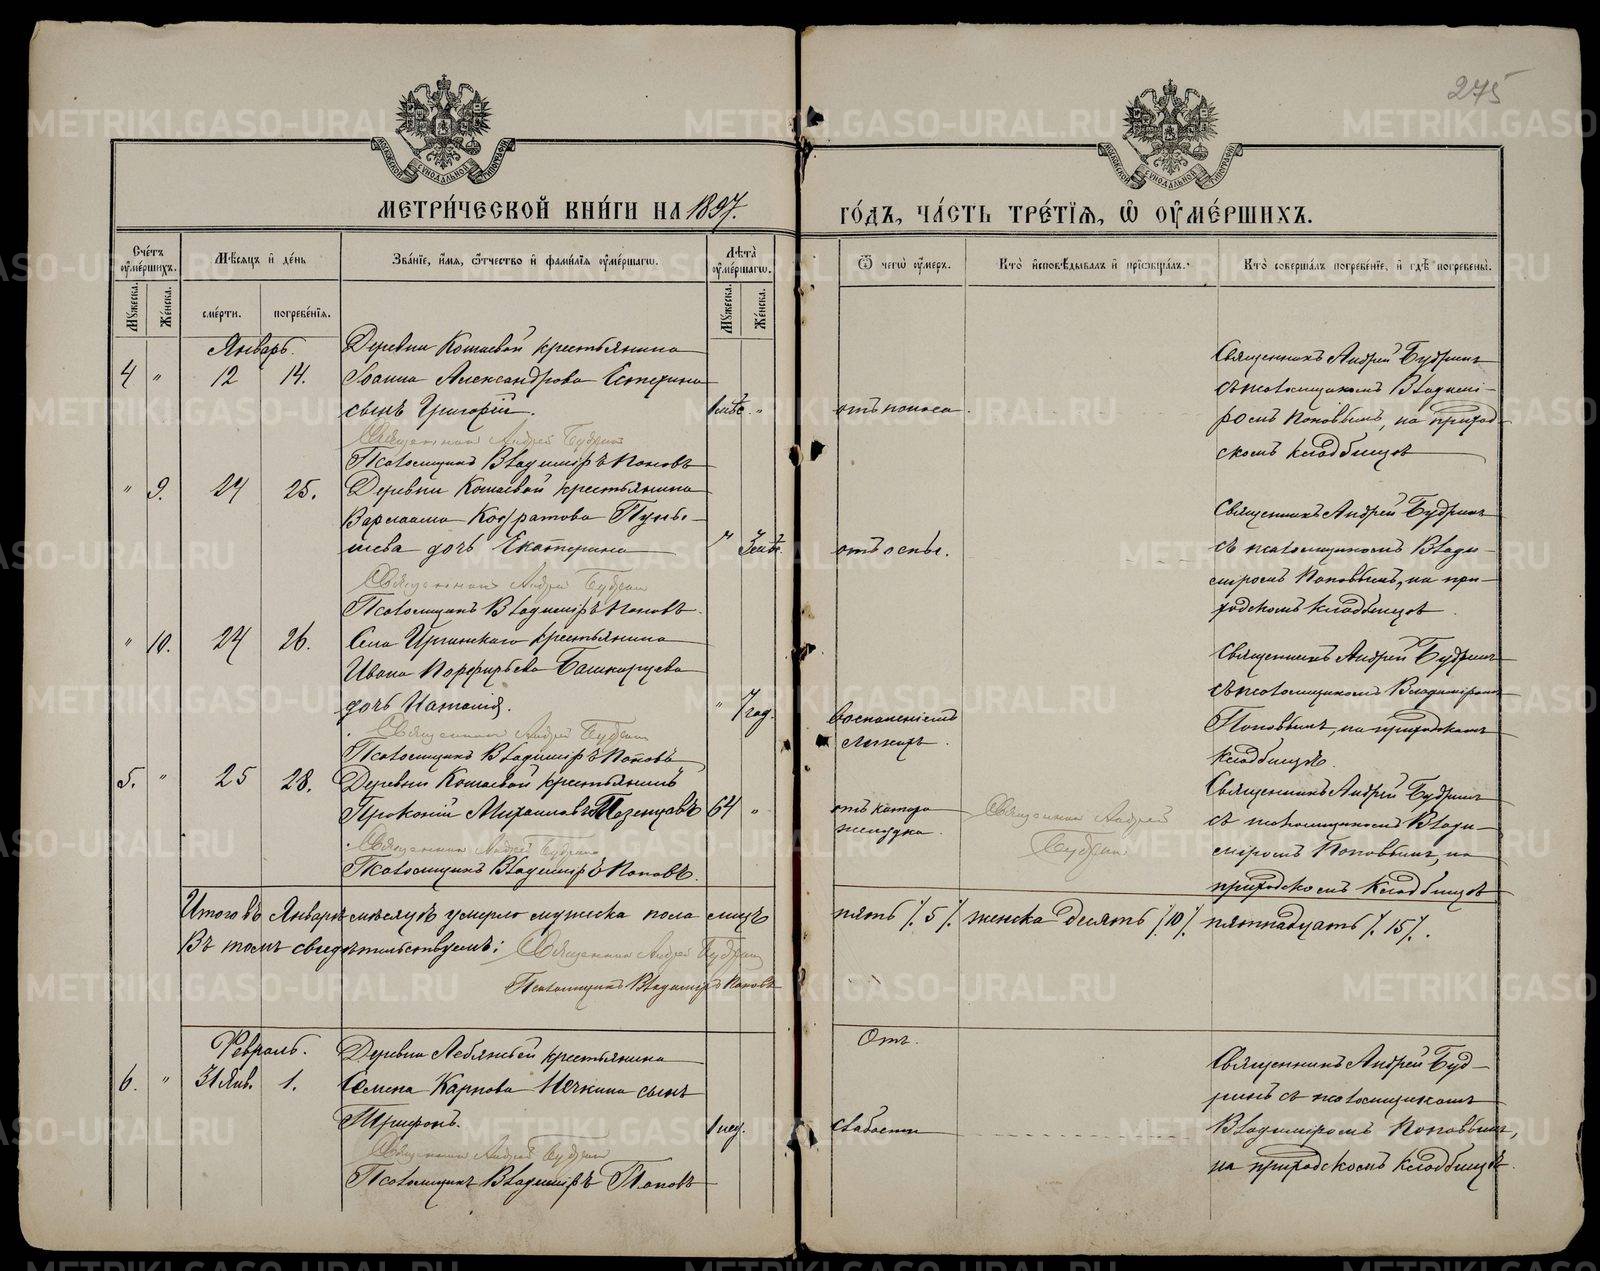 275
МЕТРИЧЕСКОЙ КНИГИ НА 1897.
ГОДЪ, ЧАСТЬ ТРЕТІЯ, Ѡ ОУМЕРШИХЪ.
Счетъ оумершихъ.
Мѣсяцъ и день
Званіе, имя, ѿчество и фамилія оумершагѡ.
Лѣта оумершагѡ.
Ѿ чегѡ оумеръ.
Кто исповѣдывалъ и пріѡбщалъ.
Кто совершалъ погребеніе, и гдѣ погребены.
Мужеска.
Женска.
смерти.
погребенія.
Мужеска.
Женска.
Январь.
Деревни Кошаевой крестьянина
4 " 12 14. Іоанна Александрова
сынъ Григорій. 1 мѣс. " отъ поноса.
Священникъ Андрей Будринъ
Псаломщикъ Владиміръ Поповъ
Священникъ Андрей Будринъ
съ псаломщикомъ Владимі-
ромъ Поповымъ, на приход-
скомъ кладбищѣ
" 9. 24 25. Деревни Кошаевой крестьянина
Варлаама
дочь Екатерина " мѣс. отъ оспы.
Священникъ Андрей Будринъ
Псаломщикъ Владиміръ Поповъ.
Священникъ Андрей Будринъ
съ псаломщикомъ Влади-
міромъ Поповымъ, на при-
ходскомъ кладбищѣ.
" 10. 24 26. Села Иргинскаго крестьянина
Ивана Порфирьева Башкирцева
дочь Наталія. " 7 год. Воспаленіемъ
легкихъ.
Священникъ Андрей Будринъ
Псаломщикъ Владиміръ Поповъ
Священникъ Андрей Будринъ
съ псаломщикомъ Владиміромъ
Поповымъ, на приходскомъ
кладбищѣ.
5. " 25 28. Деревни Кошаевой крестьянинъ
Прокопій Михаиловъ 64 " отъ катара
желудка.
Священникъ Андрей
Будринъ
Священникъ Андрей Будринъ
Псаломщикъ Владиміръ Поповъ.
Священникъ Андрей Будринъ
съ псаломщикомъ Влади-
міромъ Поповымъ, на
приходскомъ кладбищѣ
Итого въ Январѣ мѣсяцѣ умерло мужеска пола лицъ пять /. 5 /. женска десять /. 10 /. пятнадцать /. 15 /.
Въ томъ свидѣтельствуемъ: Священникъ Андрей Будринъ
Псаломщикъ Владиміръ Поповъ
Февраль.
Деревни Лебяжьей крестьянина
Отъ
6. " 31 Янв. 1. Семена Карпова Нечкина сынъ
Трифонъ. 1 нед. слабости
Священникъ Андрей Будринъ
Псаломщикъ Владиміръ Поповъ
Священникъ Андрей Буд-
ринъ съ псаломщикомъ
Владиміромъ Поповымъ,
на приходскомъ кладбищѣ.
METRIKI.GASO-URAL.RU